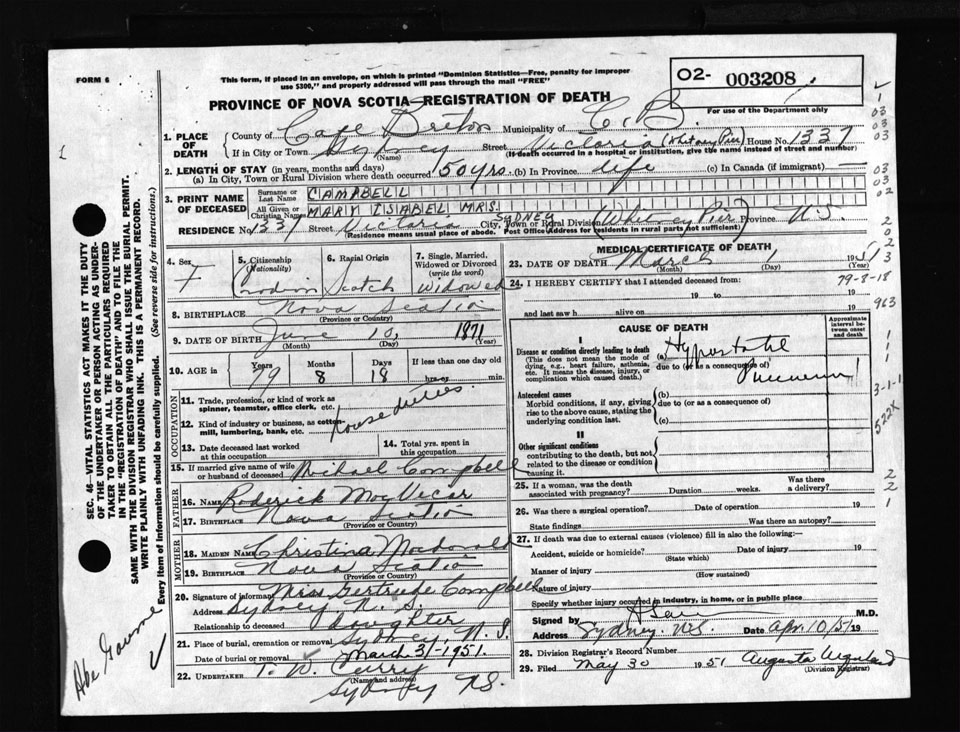 FORM 6
This form, if placed in an envelope, on which is printed "Dominion Statistics—Free, penalty for improper
use $300," and properly addressed will pass through the mail "FREE"
O2- 003208
PROVINCE OF NOVA SCOTIA—REGISTRATION OF DEATH
For use of the Department only
1. PLACE OF DEATH { County of Cape Breton Municipality of C. B.
If in City or Town Sydney (Name) Street Victoria (Whitney Pier) House No. 1337
(If death occurred in a hospital or institution, give the name instead of street and number)
2. LENGTH OF STAY (in years, months and days)
(a) In City, Town or Rural Division where death occurred 50 yrs. (b) In Province life (c) In Canada (if immigrant)
3. PRINT NAME OF DECEASED { Surname or Last Name CAMPBELL
All Given or Christian Names MARY ISABEL MRS.
RESIDENCE No. 1337 Street Victoria City, Town or Rural Division SYDNEY (Whitney Pier) Province N.S.
(Residence means usual place of abode. Post Office Address for residents in rural parts not sufficient)
4. Sex F
5. Citizenship (Nationality) Canadian
6. Racial Origin Scotch
7. Single, Married, Widowed or Divorced (write the word) Widowed
8. BIRTHPLACE Nova Scotia
(Province or Country)
9. DATE OF BIRTH June 10, 1871
(Month) (Day) (Year)
10. AGE in { Years 79 Months 8 Days 18 If less than one day old hrs. or min.
OCCUPATION
11. Trade, profession, or kind of work as
spinner, teamster, office clerk, etc. House duties
12. Kind of industry or business, as cotton-
mill, lumbering, bank, etc.
13. Date deceased last worked
at this occupation
14. Total yrs. spent in
this occupation
15. If married give name of wife
or husband of deceased Michael Campbell
FATHER
16. NAME Roderick MacVicar
17. BIRTHPLACE Nova Scotia
(Province or Country)
MOTHER
18. MAIDEN NAME Christina Macdonald
19. BIRTHPLACE Nova Scotia
(Province or Country)
20. Signature of informant Miss Gertrude Campbell
Address Sydney N. S.
Relationship to deceased daughter
21. Place of burial, cremation or removal Sydney, N. S.
Date of burial or removal March 3/-1951.
22. UNDERTAKER T. W. Curry
(Name and address)
Sydney NS.
MEDICAL CERTIFICATE OF DEATH
23. DATE OF DEATH March 1 1951
(Month) (Day) (Year)
24. I HEREBY CERTIFY that I attended deceased from
19 to 19
and last saw h alive on 19
CAUSE OF DEATH
Approximate interval between onset and death
I
Disease or condition directly leading to death
(This does not mean the mode of
dying, e.g., heart failure, asthenia,
etc. It means the disease, injury, or
complication which caused death.)
(a) Hypostatic
due to (or as a consequence of)
Pneumonia
Antecedent causes
Morbid conditions, if any, giving
rise to the above cause, stating the
underlying condition last.
(b)
due to (or as a consequence of)
(c)
II
Other significant conditions
contributing to the death, but not
related to the disease or condition
causing it.
25. If a woman, was the death
associated with pregnancy? Duration weeks. Was there
a delivery?
26. Was there a surgical operation? Date of operation 19
State findings Was there an autopsy?
27. If death was due to external causes (violence) fill in also the following:—
Accident, suicide or homicide? Date of injury 19
(State which)
Manner of injury
(How sustained)
Nature of injury
Specify whether injury occurred in industry, in home, or in public place
Signed by M.D.
Address Sydney. N.S. Date Apr. 10/51 19
28. Division Registrar's Record Number
29. Filed May 30 1951 Augusta
(Division Registrar)
SEC. 46—VITAL STATISTICS ACT MAKES IT THE DUTY
OF THE UNDERTAKER OR PERSON ACTING AS UNDER-
TAKER TO OBTAIN ALL THE PARTICULARS REQUIRED
IN THE "REGISTRATION OF DEATH" AND TO FILE THE
SAME WITH THE DIVISION REGISTRAR WHO SHALL ISSUE THE BURIAL PERMIT.
WRITE PLAINLY WITH UNFADING INK. THIS IS A PERMANENT RECORD.
Every item of Information should be carefully supplied. (See reverse side for instructions.)
1
03
03
03
03
02
2
0
2
3
79-8-18
963
1
1
1
3-1-1
522X
2
2
1